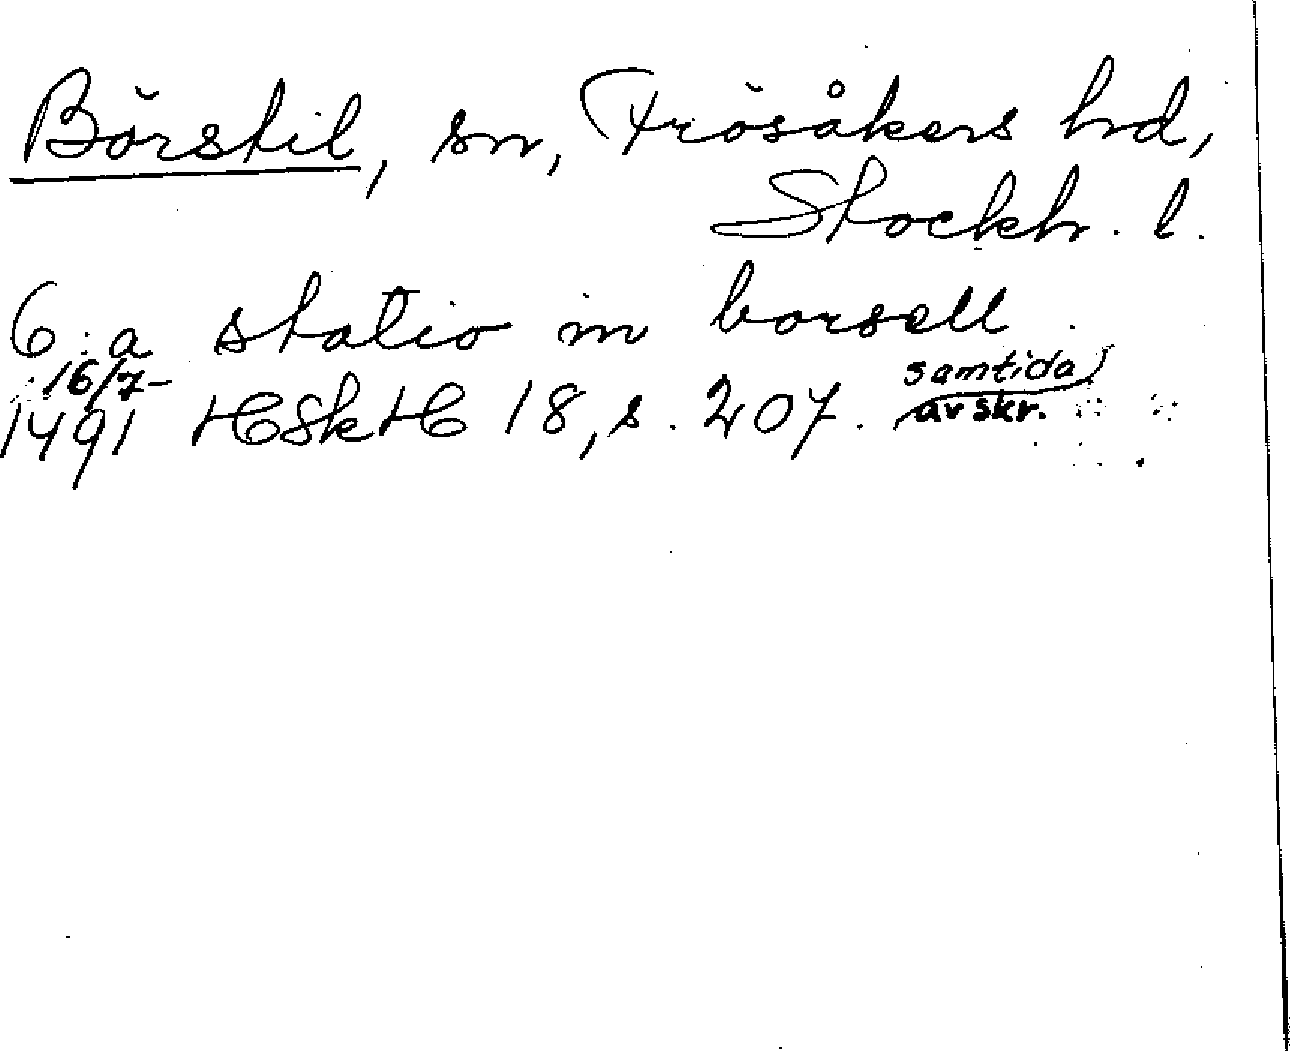 Börstil, sn, Frösåkers hd,
Stockh. l.
6:a statio in borsell
16/7-
1491 HSkH 18, s. 207. samtida
avskr.